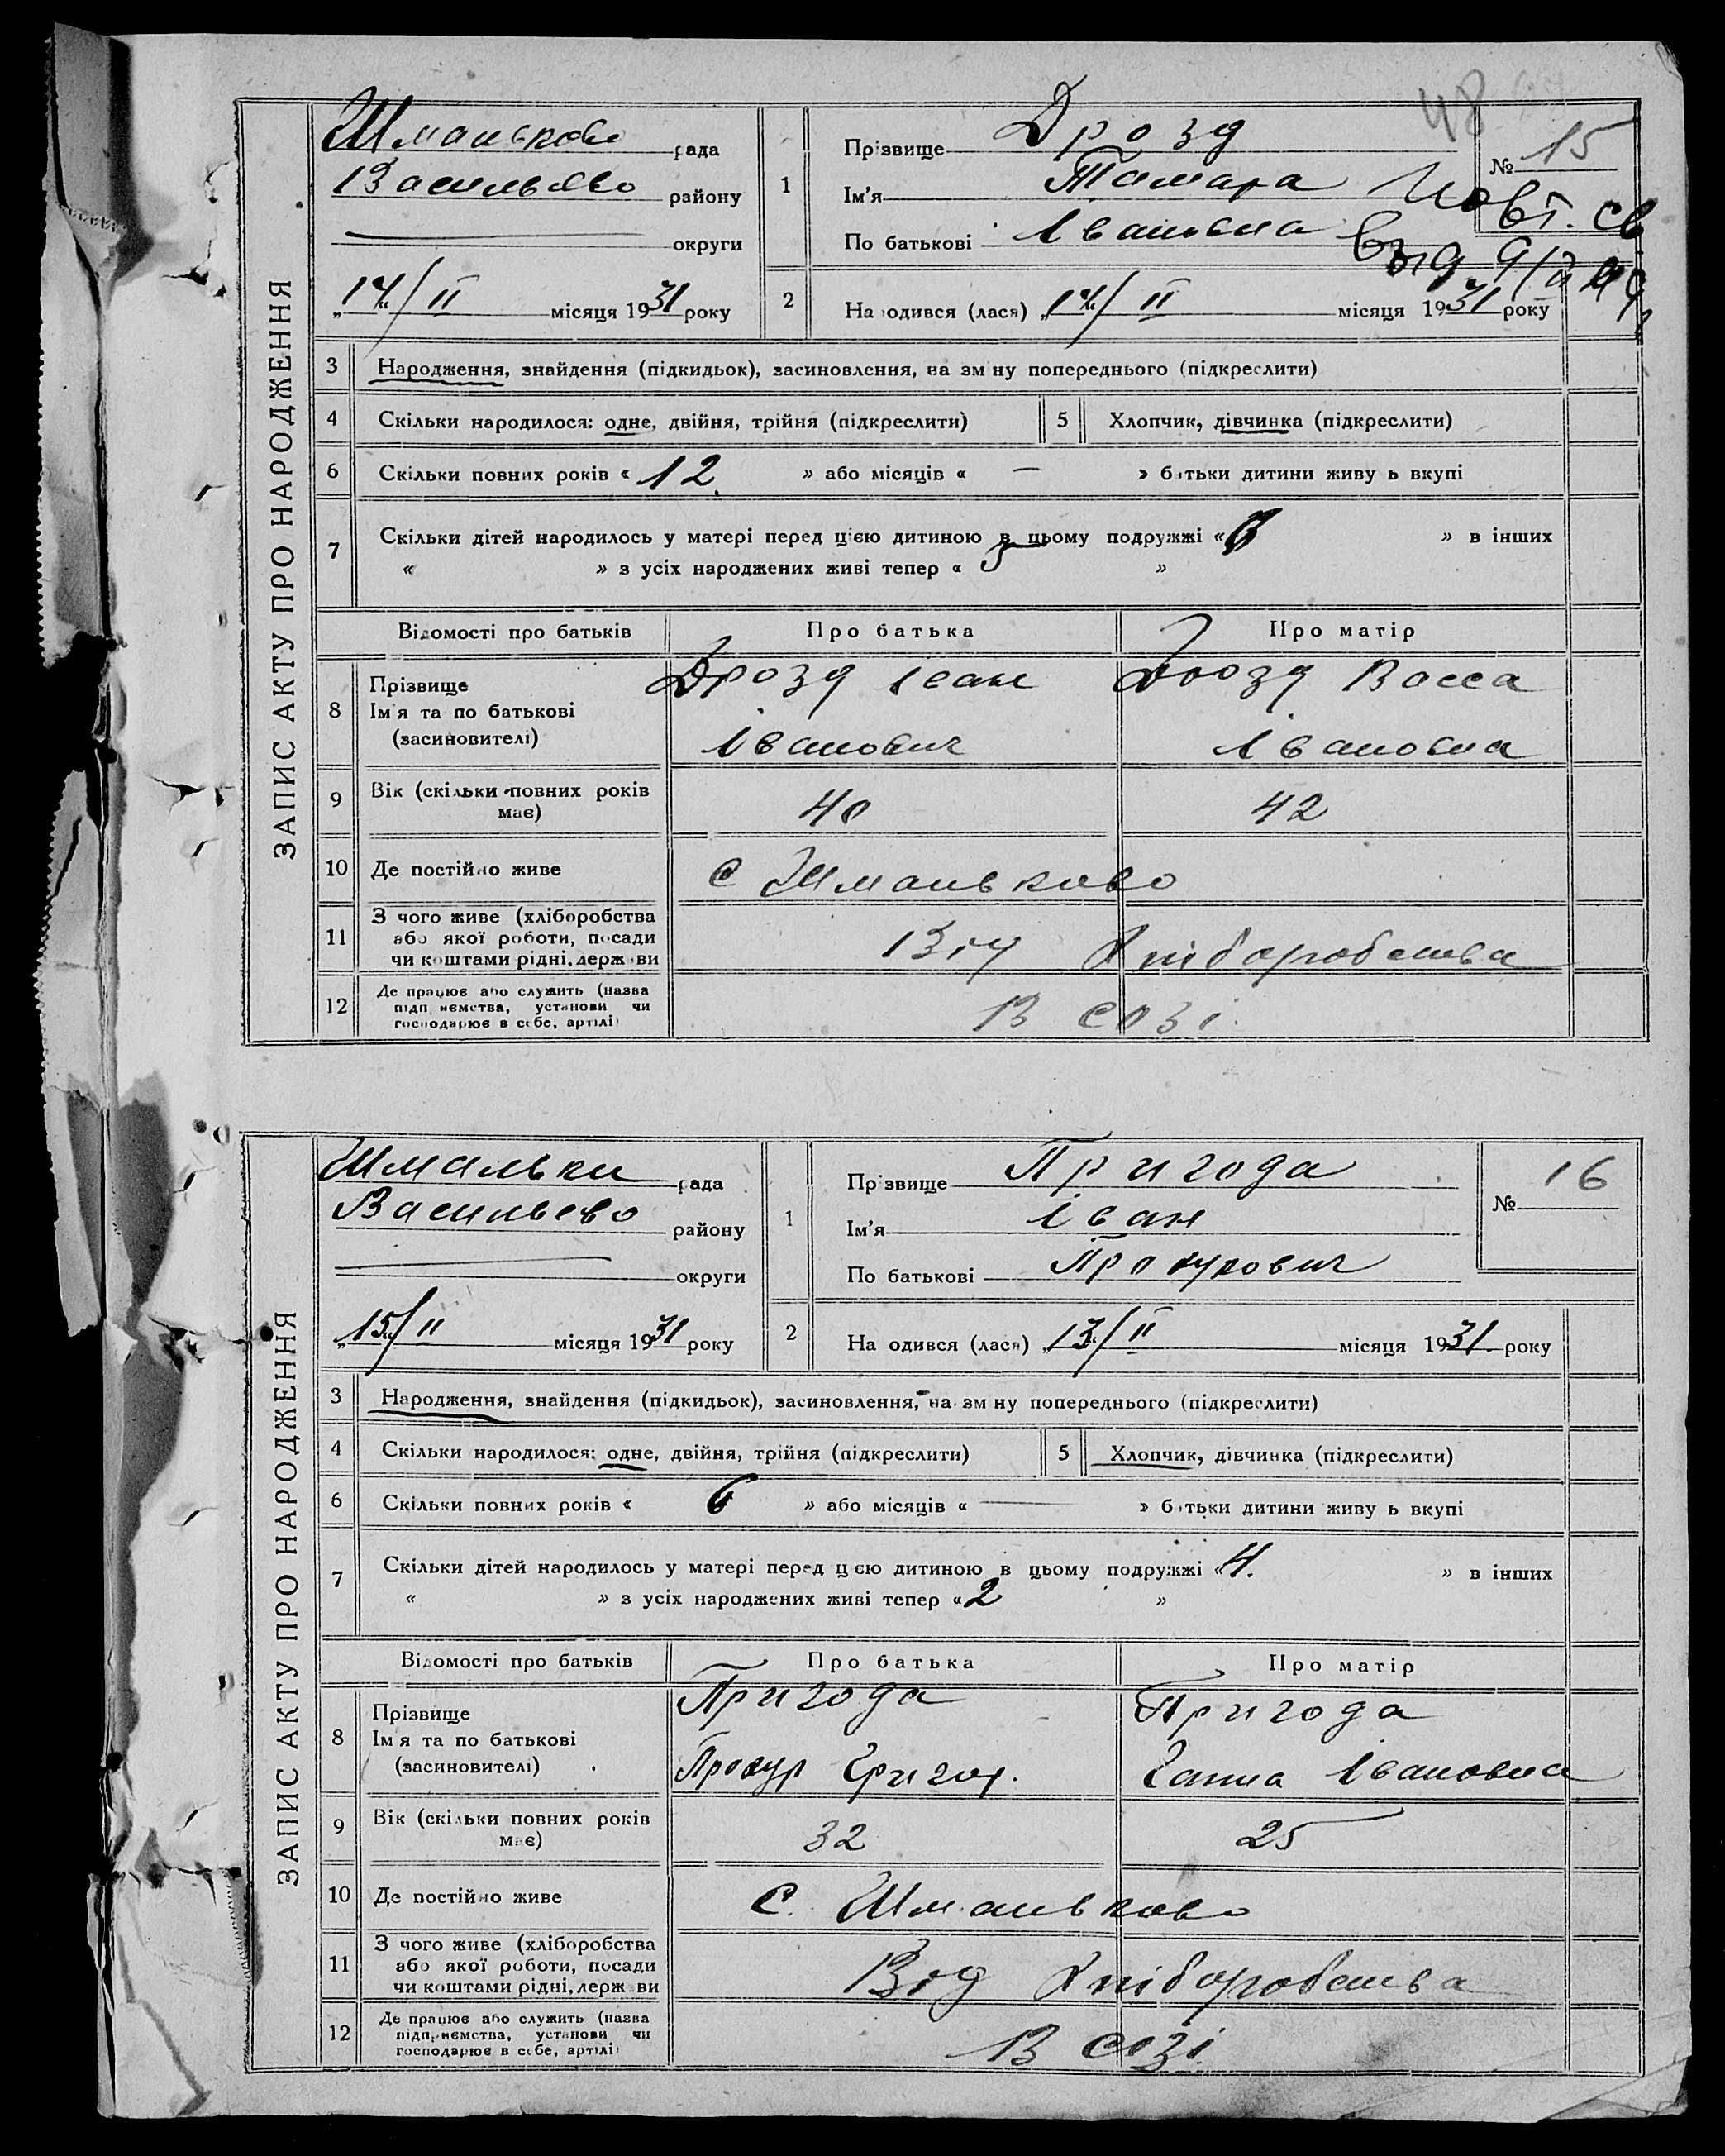 48
ЗАПИС АКТУ ПРО НАРОДЖЕННЯ
Шманьково рада
Васильево району
округи
„14“/II місяця 1931 року
1
Прізвище Дрозд
Ім'я Тамара
По батькові Івановна
№ 15
Повт. св
выд
2 Народився (лася) „14“/II місяця 1931 року
3 Народження, знайдення (підкидьок), засиновлення, на зміну попереднього (підкреслити)
4 Скільки народилося: одне, двійня, трійня (підкреслити) 5 Хлопчик, дівчинка (підкреслити)
6 Скільки повних років « 12 » або місяців « — » батьки дитини живуть вкупі
7 Скільки дітей народилось у матері перед цією дитиною в цьому подружжі « » в інших
« » з усіх народжених живі тепер « 5 »
Відомості про батьків Про батька Про матір
8 Прізвище Дрозд Іван Дрозд Васса
Ім'я та по батькові
(засиновителі) Іванович Івановна
9 Вік (скільки повних років 40 42
має)
10 Де постійно живе с Шманьково
11 З чого живе (хліборобства
або якої роботи, посади Від Хліборобства
чи коштами рідні, держави
12 Де працює або служить (назва
підприємства, установи чи В созі.
господарює в себе, артілі)
ЗАПИС АКТУ ПРО НАРОДЖЕННЯ
Шманьки рада
Васильево району
округи
„15“/II місяця 1931 року
1
Прізвище Пригода
Ім'я Іван
По батькові Прокурович
№ 16
2 Народився (лася) „13“/II місяця 1931. року
3 Народження, знайдення (підкидьок), засиновлення, на зміну попереднього (підкреслити)
4 Скільки народилося: одне, двійня, трійня (підкреслити) 5 Хлопчик, дівчинка (підкреслити)
6 Скільки повних років « 6 » або місяців « — » батьки дитини живуть вкупі
7 Скільки дітей народилось у матері перед цією дитиною в цьому подружжі « 4. » в інших
« » з усіх народжених живі тепер « 2 »
Відомості про батьків Про батька Про матір
8 Прізвище Пригода Пригода
Ім'я та по батькові
(засиновителі) Прокур Григор. Ганна Івановна
9 Вік (скільки повних років 32 25
має)
10 Де постійно живе С. Шманьково
11 З чого живе (хліборобства
або якої роботи, посади Від Хліборобства
чи коштами рідні, держави
12 Де працює або служить (назва
підприємства, установи чи В созі.
господарює в себе, артілі)